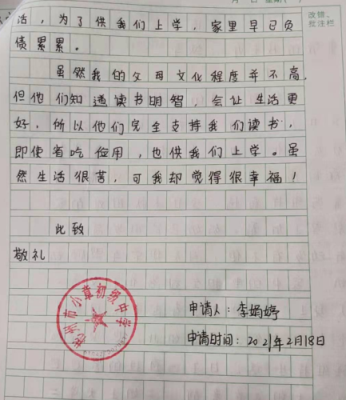 活，为了供我们上学，家里早已负
债累累。
虽然我的父母文化程度并不高，
但他们知道读书明智，会让生活更
好，所以他们完全支持我们读书，
即使省吃俭用，也供我们上学。虽
然生活很苦，可我却觉得很幸福！
此致
敬礼
市小章初级中学
申请人：李娟婷
申请时间：2021年2月18日